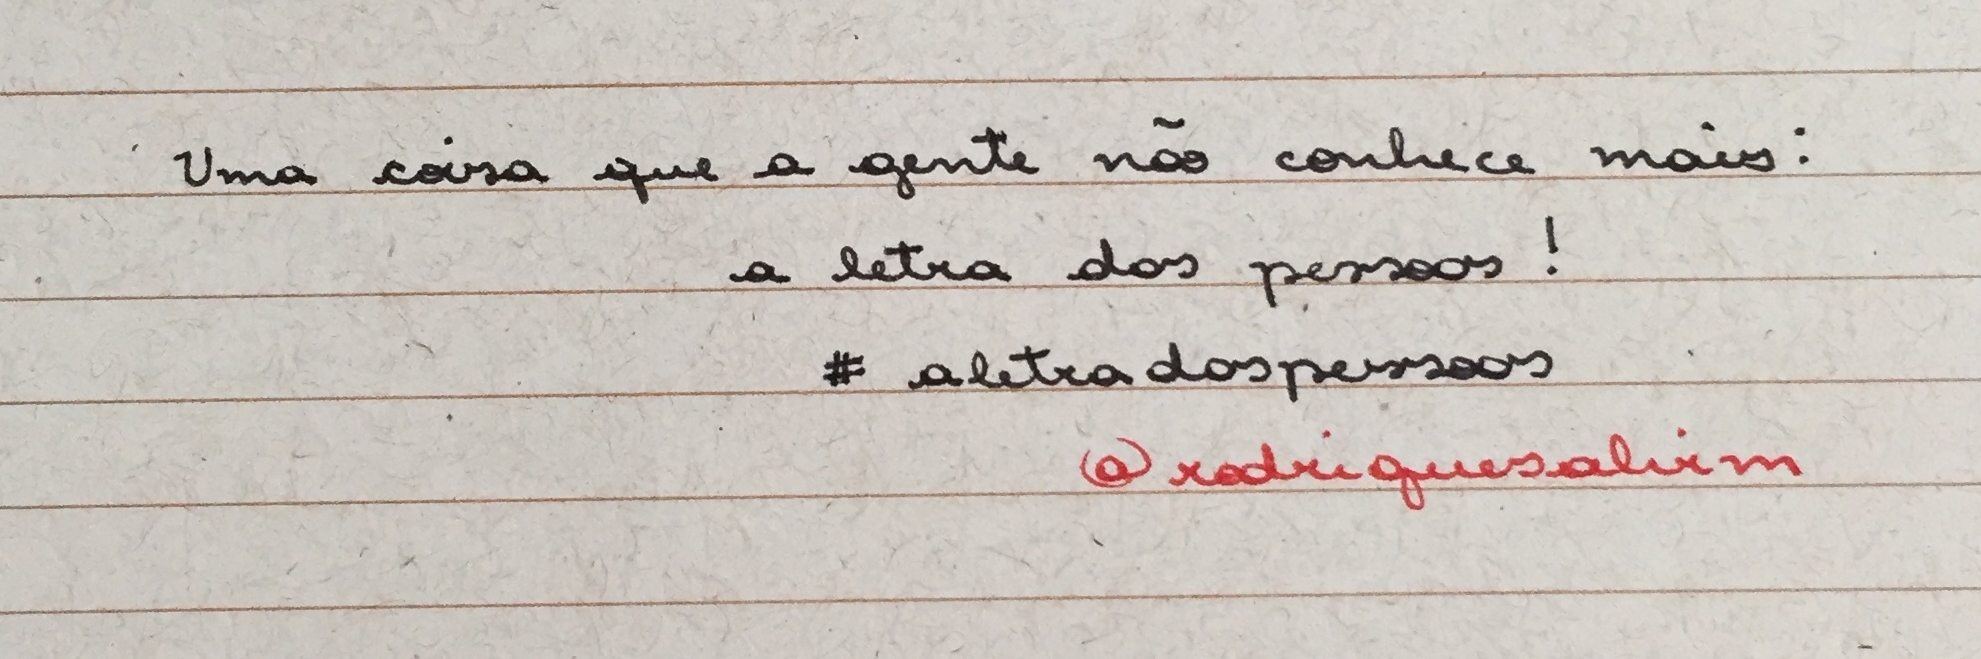 Uma coisa que a gente não conhece mais:
a letra das pessoas!
#aletradaspessoas
@rodriguesalvim